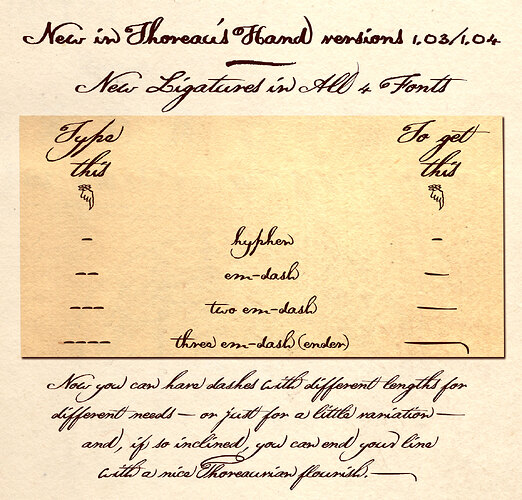 New in Thoreau's Hand versions 1.03/1.04
New Ligatures in All 4 Fonts
Type this To get this
- hyphen -
-- em-dash —
--- two em-dash ——
---- three em-dash (ender) ———
Now you can have dashes with different lengths for
different needs — or just for a little variation —
and, if so inclined, you can end your line
with a nice Thoreauvian flourish. ———